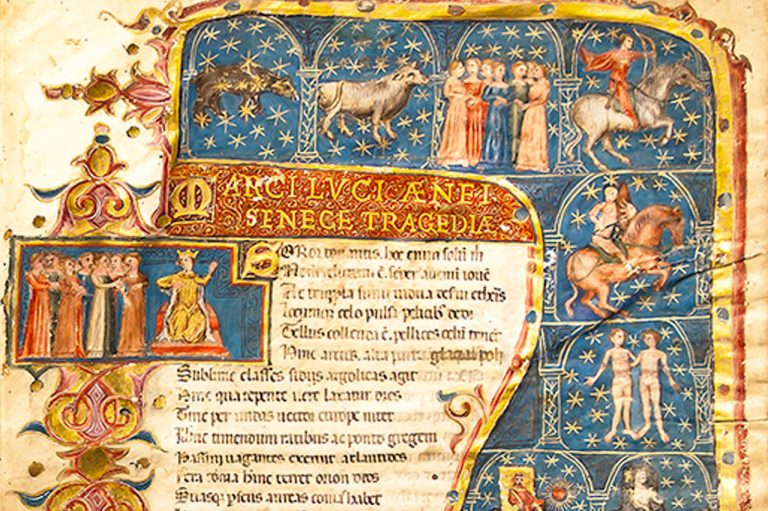 MARCI LVCI ÆNEI
SENECE TRAGEDIÆ
SOROR tonantis. hoc enim solū m
Nomen relictum ē. seper alienū iovē
Ac templa sumi vidua deserui etheris
Locumqz celo pulsa pelicibz dedi
Tellus colenda ē. pelices celū tenēt
Hinc arctos. alta parte glacialis poli
Sublime classes sidus argolicas agit
Hinc qua tepente vere laxatur dies
Tirie per undas vector europe nitet
Hinc timendum ratibus ac ponto gregem
Passim vagantes exerunt atlantides
Fera coma hinc terret orion deos
Suasqz perseus aureas comas habet